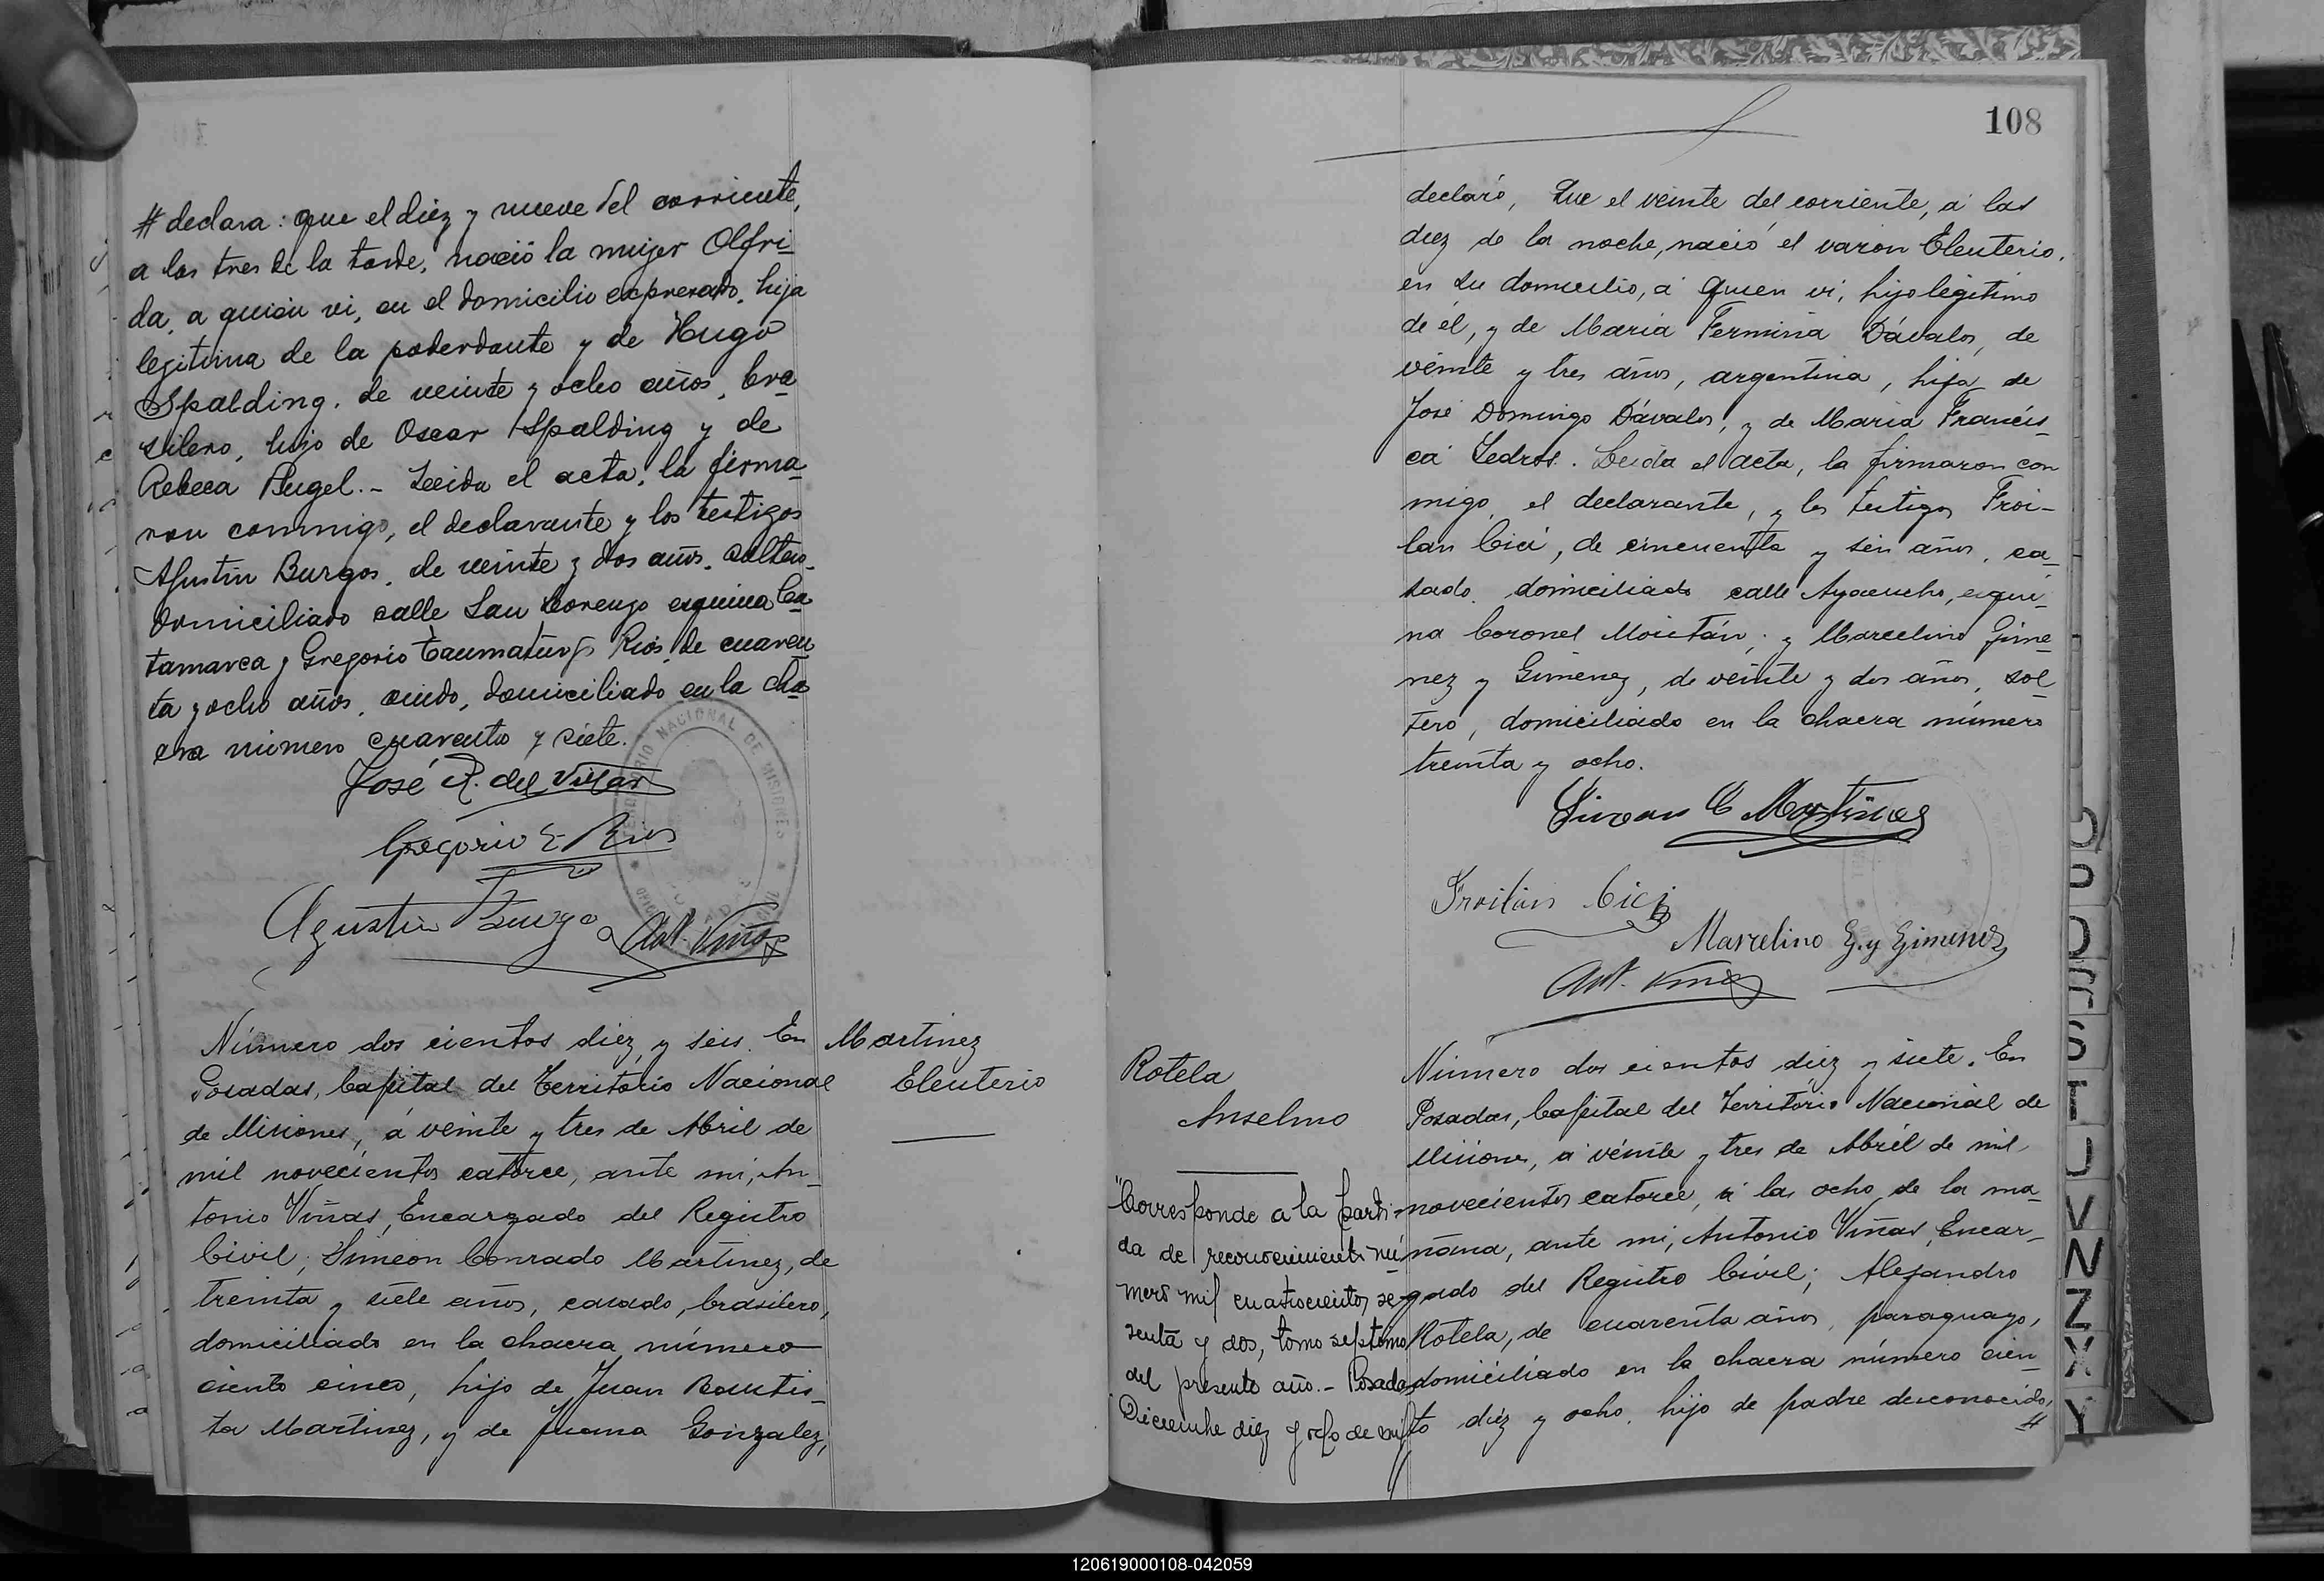 # declara: que el diez y nueve del corriente,
a las tres de la tarde, nació la mujer Olfri-
da, a quien vi, en el domicilio expresado, hija
legitima de la poderdante y de Hugo
Spalding, de veinte y ocho años, bra-
silero, hijo de Oscar Spalding y de
Rebeca Pugel.- Leida el acta, la firma-
ron conmigo, el declarante y los testigos
Agustin Burgos, de veinte y dos años, soltero,
domiciliado calle San Lorenzo esquina Ca-
tamarca y Gregorio Taumaturgo Rios, de cuaren-
ta y ocho años, viudo, domiciliado en la cha-
cra número cuarenta y siete.
José R. del Villar
Gregorio E. Rios
Agustin Burgo
Ant. Viñas
TERRITORIO NACIONAL DE MISIONES
Número dos cientos diez y seis. En
Posadas, Capital del Territorio Nacional
de Misiones, á veinte y tres de Abril de
mil novecientos catorce, ante mi, An-
tonio Viñas, Encargado del Registro
Civil; Simeon Conrado Martinez, de
treinta y siete años, casado, brasilero,
domiciliado en la chacra número
ciento cinco, hijo de Juan Bautis-
ta Martinez, y de Juana Gonzalez,
Martinez
Eleuterio
108
declaró, Que el veinte del corriente, á las
diez de la noche, nació el varon Eleuterio,
en su domicilio, á quien vi, hijo legitimo
de él, y de Maria Fermina Dávalos, de
veinte y tres años, argentina, hija de
José Domingo Dávalos, y de Maria Francis-
ca Ledros. Leida el acta, la firmaron con
migo, el declarante, y los testigos Froi-
lan Cici, de cincuenta y seis años, ca-
sado, domiciliado calle Ayacucho, esqui-
na Coronel Moritán; y Marcelino Gime-
nez y Gimenez, de veinte y dos años, sol-
tero, domiciliado en la chacra número
treinta y ocho.
Simeon C Martinez
Froilan Cici
Marcelino G. y Gimenez
Ant. Viñas
Rotela
Anselmo
"Corresponde a la parti-
da de reconocimiento nú
mero mil cuatrocientos se-
senta y dos, tomo septimo
del presente año.- Posadas
Diciembre diez y ocho de mil
Número dos cientos diez y siete. En
Posadas, Capital del Territorio Nacional de
Misiones, á veinte y tres de Abril de mil
novecientos catorce, á las ocho de la ma-
ñana, ante mi, Antonio Viñas, Encar-
gado del Registro Civil; Alejandro
Rotela, de cuarenta años, paraguayo,
domiciliado en la chacra número cien
to diez y ocho, hijo de padre desconocido,
#
O
P
Q
R
S
T
U
V
W
Z
X
Y
120619000108-042059